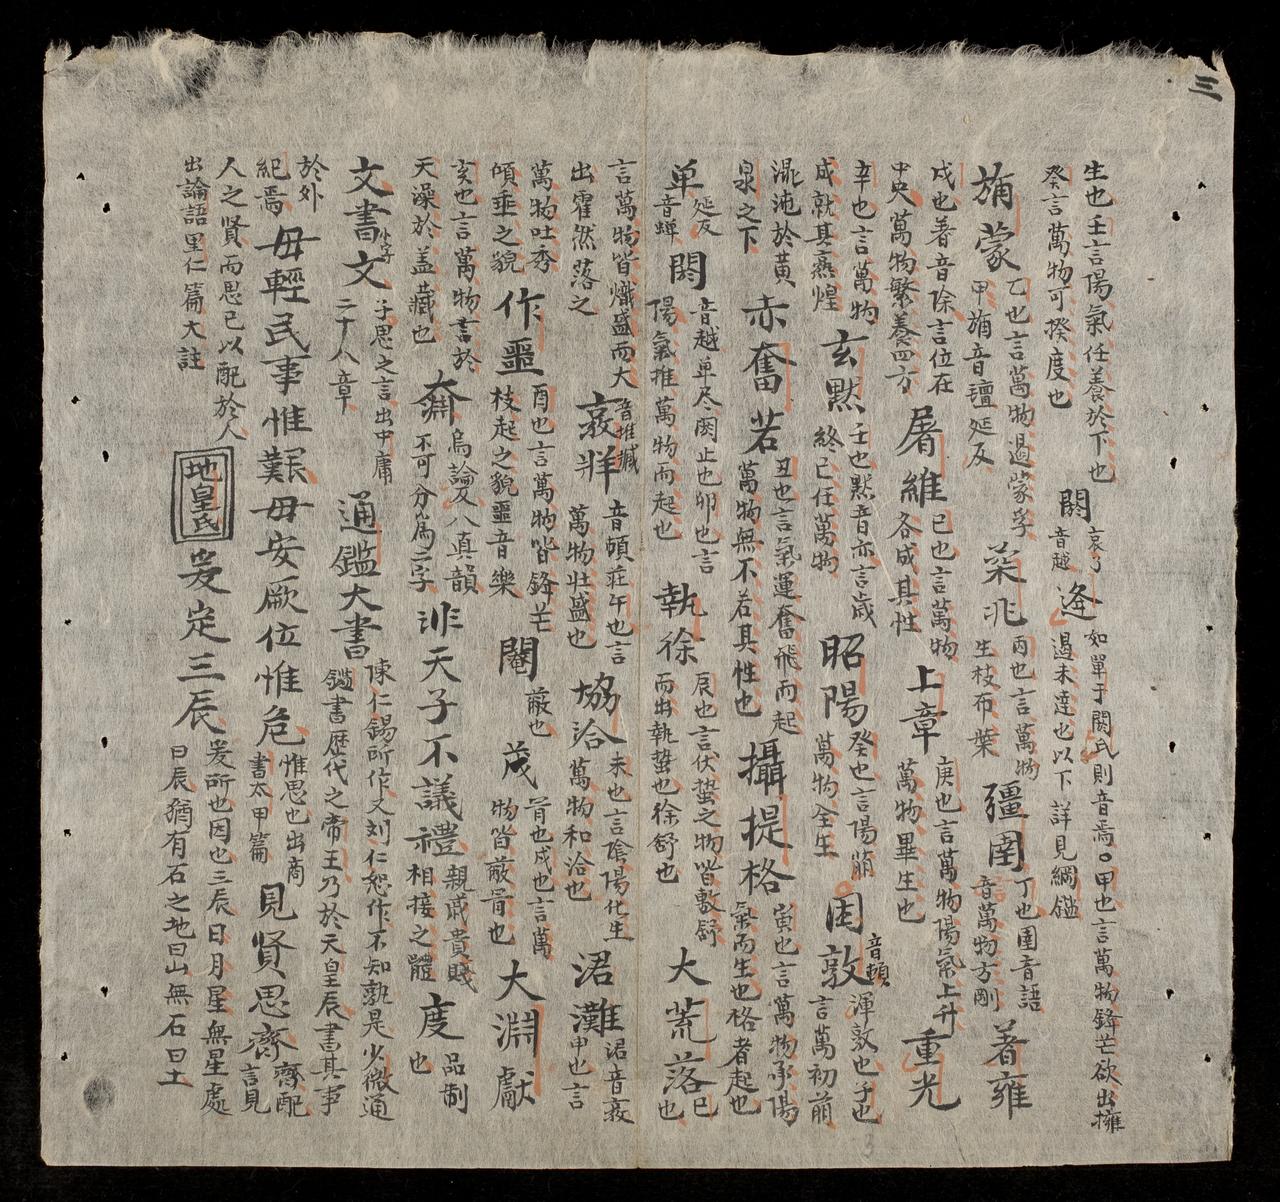 三
生也壬言陽氣任養於下也
癸言萬物可揆度也
閼
音越
逢
如單于閼氏則音焉○甲也言萬物鋒芒欲出擁
遏未達也以下詳見綱鑑
旃蒙
乙也言萬物過蒙孚
甲旃音氊延反
柔兆
丙也言萬物
生枝布葉
彊圉
丁也圉音語
音萬物方剛
著雍
戊也著音除言位在
中央萬物繁養四方
屠維
已也言萬物
各成其性
上章
庚也言萬物陽氣上升
萬物畢生也
重光
辛也言萬物
成就其熹煌
玄黙
壬也黙音亦言歲
終已任萬物
昭陽
癸也言陽萠
萬物全生
困敦
音頓
渾敦也子也
言萬初萠
混沌於黃
泉之下
赤奮若
丑也言氣運奮飛而起
萬物無不若其性也
攝提格
寅也言萬物承陽
氣而生也格者起也
单
延反
音蟬
閼
音越单尽閼止也卯也言
陽氣推萬物而起也
執徐
辰也言伏蛰之物皆敷舒
而出執蛰也徐舒也
大荒落
巳
也
言萬物皆熾盛而大
出霍然落之
敦牂
音頓莊午也言
萬物壯盛也
協洽
未也言陰陽化生
萬物和洽也
涒灘
涒音衮
申也言
萬物吐秀
傾垂之貌
作噩
酉也言萬物皆鋒芒
枝起之貌噩音樂
閹
蔽也
茂
冐也戌也言萬
物皆蔽冐也
大淵獻
亥也言萬物言於
天澡於盖藏也
奫
烏論反八真韻
不可分為二字
非天子不議禮
親戚貴賤
相接之體
度
品制
也
文書
小字
文
子思之言出中庸
二十八章
通鑑大書
陳仁錫所作又刘仁恕作不知孰是少微通
鑑書歷代之帝王乃於天皇辰書其事
於外
紀焉
毋輕民事惟艱毋安厥位惟危
惟思也出商
書太甲篇
見賢思齊
齊配
言見
人之賢而思已以配於人
出論語里仁篇大註
地皇氏
爰定三辰
爰所也因也三辰日月星無星處
曰辰猶有石之地曰山無石曰土